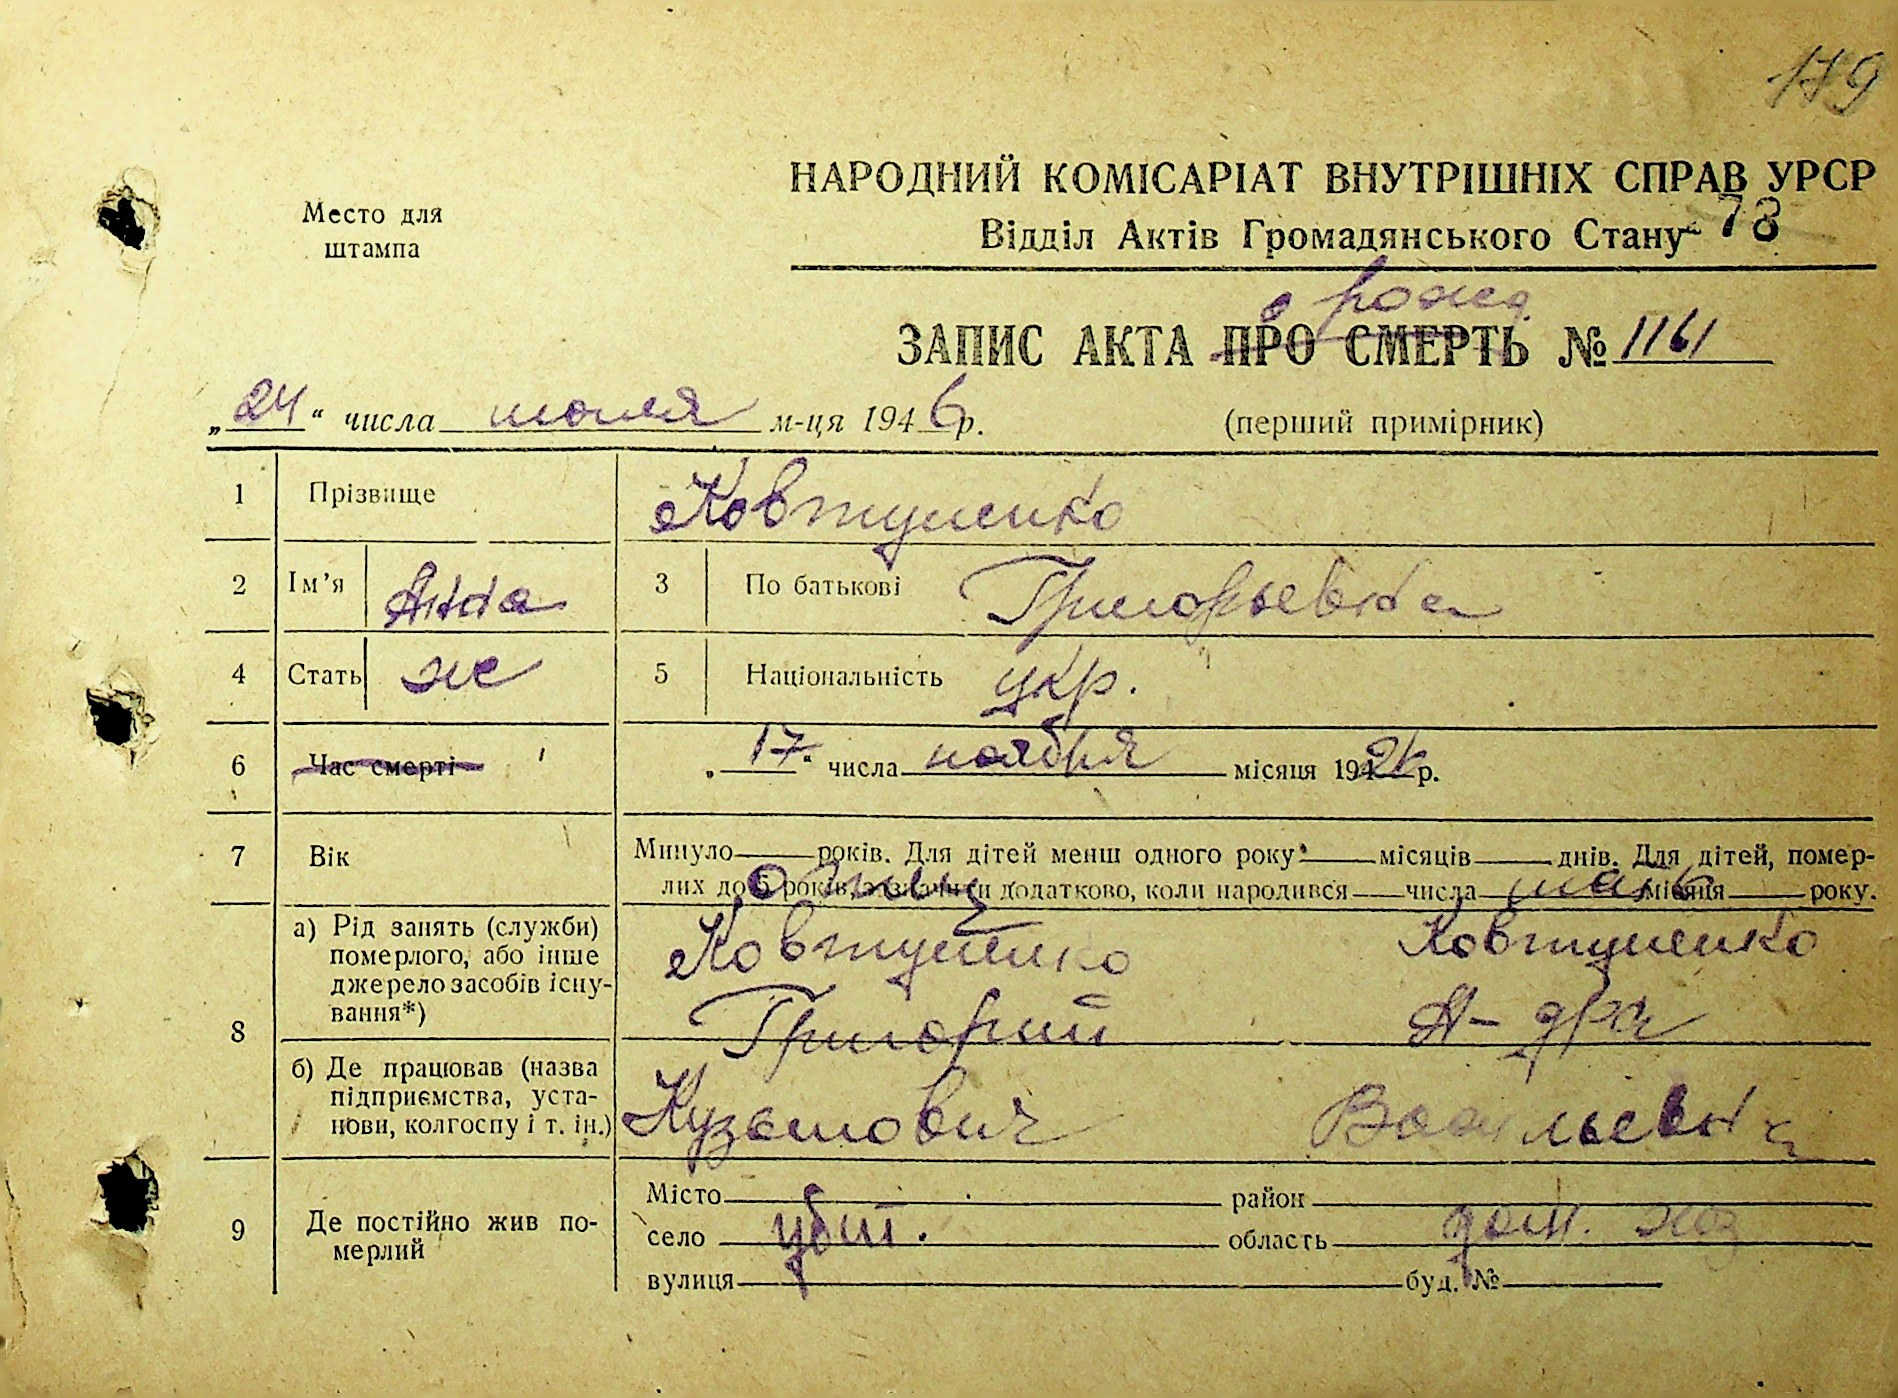 179
Место для
штампа
НАРОДНИЙ КОМІСАРІАТ ВНУТРІШНІХ СПРАВ УРСР
Відділ Актів Громадянського Стану 78
о рожд.
ЗАПИС АКТА ПРО СМЕРТЬ № 1161
„24“ числа июля м-ця 1946 р. (перший примірник)
1 Прізвище Ковтуненко
2 Ім'я Анна 3 По батькові Григорьевна
4 Стать же 5 Національність укр.
6 Час смерті „17“ числа ноября місяця 1924 р.
7 Вік Минуло років. Для дітей менш одного року місяців днів. Для дітей, помер-
лих до 5 років, зазначити додатково, коли народився числа місяця року.
отец мать
8 а) Рід занять (служби)
померлого, або інше
джерело засобів існу-
вання*)
Ковтуненко Ковтуненко
Григорий А-дра
б) Де працював (назва
підприємства, уста-
нови, колгоспу і т. ін.)
Кузьмович Васильевна
9 Де постійно жив по-
мерлий
Місто район
село убит. область дом. хоз
вулиця буд. №